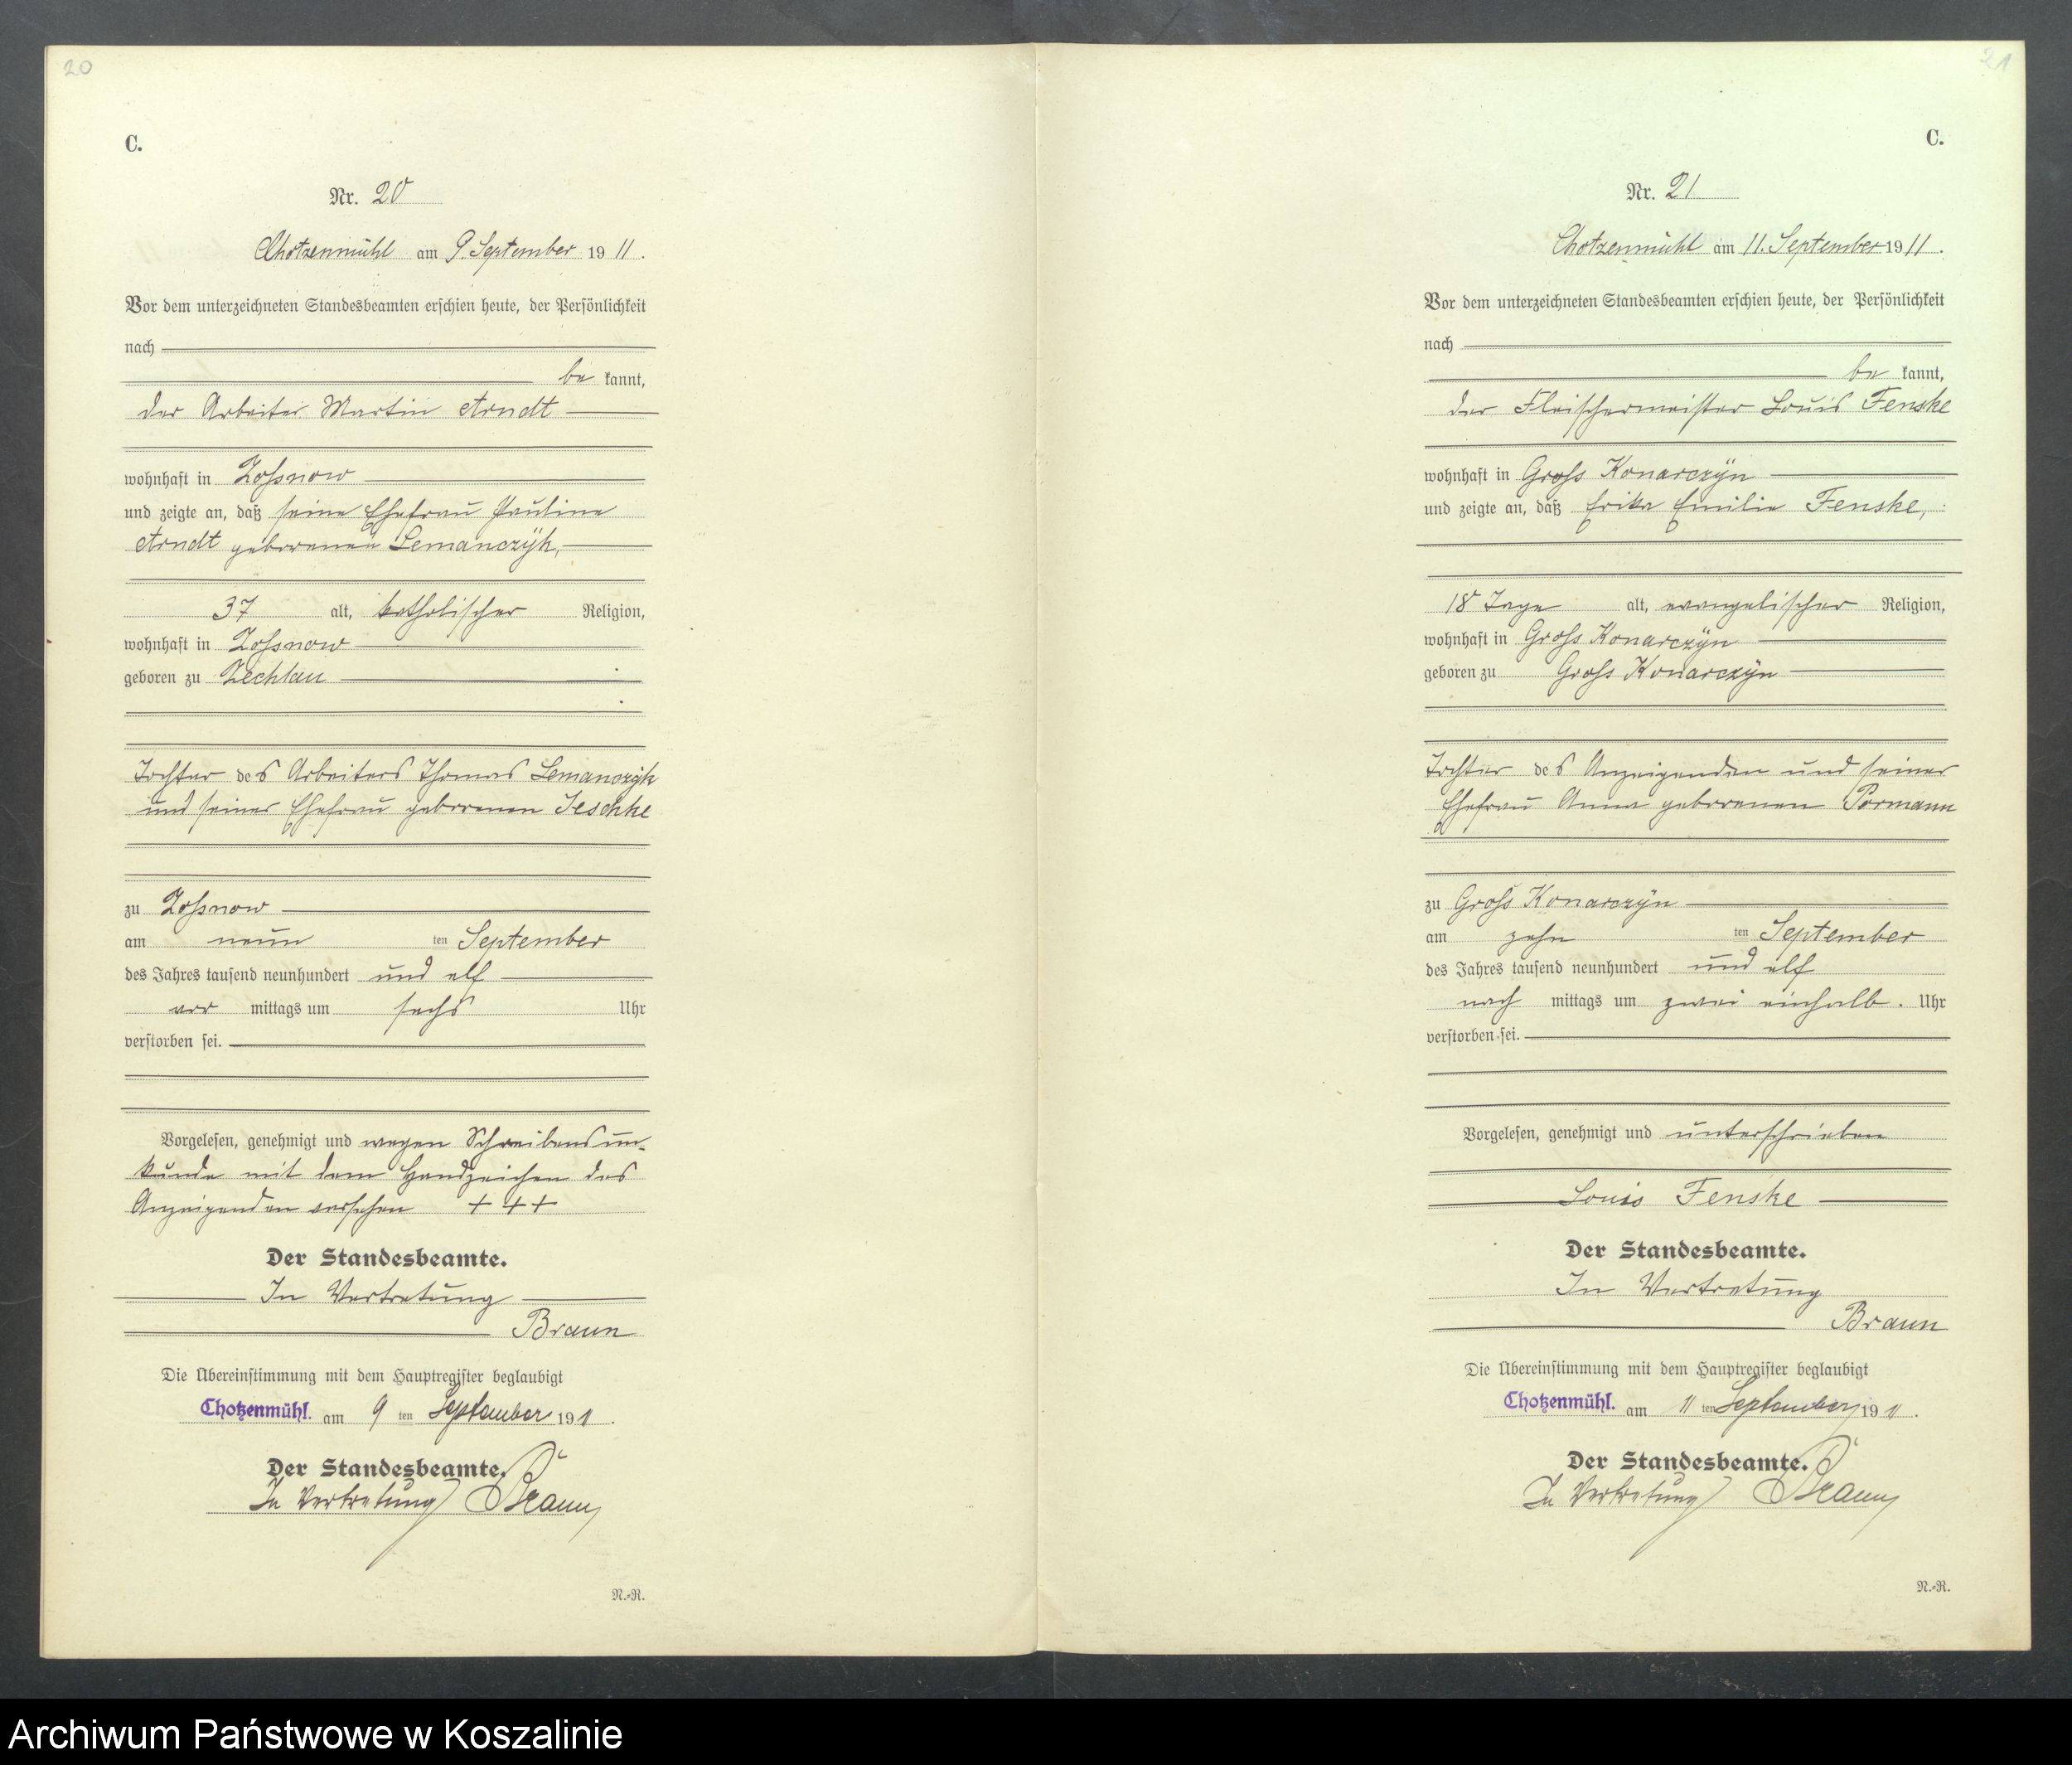 20
C.
Nr. 20
Chotzenmühl am 9. September 1911.
Vor dem unterzeichneten Standesbeamten erschien heute, der Persönlichkeit
nach
be kannt,
der Arbeiter Martin Arndt
wohnhaft in Zossnow
und zeigte an, daß seine Ehefrau Pauline
Arndt geborenen Lemanczÿk,
37 alt, katholischer Religion,
wohnhaft in Zossnow
geboren zu Zechlau
Tochter des Arbeiters Thomas Lemanczÿk
und seiner Ehefrau geborenen Jeschke
zu Zossnow
am neun ten September
des Jahres tausend neunhundert und elf
vor mittags um sechs Uhr
verstorben sei.
Vorgelesen, genehmigt und wegen Schreibensun-
kunde mit dem Handzeichen des
Anzeigenden versehen +++
Der Standesbeamte.
In Vertretung
Braun
Die Übereinstimmung mit dem Hauptregister beglaubigt
Chotzenmühl. am 9 ten September 1911.
Der Standesbeamte.
In Vertretung Braun
N.-R.
21
C.
Nr. 21
Chotzenmühl am 11. September 1911.
Vor dem unterzeichneten Standesbeamten erschien heute, der Persönlichkeit
nach
be kannt,
der Fleischermeister Louis Fenske
wohnhaft in Gross Konarczÿn
und zeigte an, daß Erika Emilie Fenske,
18 Tage alt, evangelischer Religion,
wohnhaft in Gross Konarczÿn
geboren zu Gross Konarczÿn
Tochter des Anzeigenden und seiner
Ehefrau Anna geborenen Pormann
zu Gross Konarczÿn
am zehn ten September
des Jahres tausend neunhundert und elf
nach mittags um zwei einhalb. Uhr
verstorben sei.
Vorgelesen, genehmigt und unterschrieben
Louis Fenske
Der Standesbeamte.
In Vertretung
Braun
Die Übereinstimmung mit dem Hauptregister beglaubigt
Chotzenmühl. am 11 ten September 1911.
Der Standesbeamte.
In Vertretung Braun
N.-R.
Archiwum Państwowe w Koszalinie